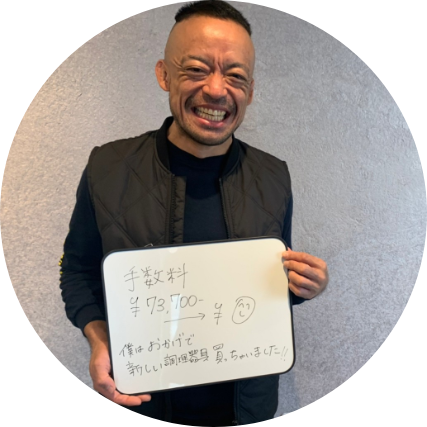 手数料
¥73,700-
→ ¥
僕はおかげで
新しい調理器具買っちゃいましたー!!